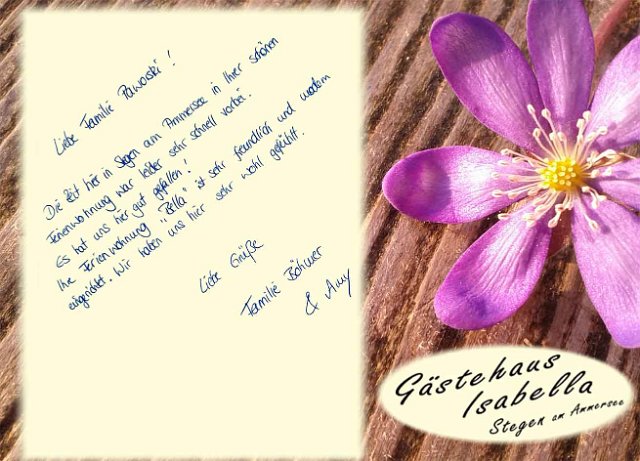 Liebe Familie Pawowski!
Die Zeit hier in Stegen am Ammersee in Ihrer schönen
Ferienwohnung war leider sehr schnell vorbei.
Es hat uns hier gut gefallen!
Ihre Ferienwohnung "Bella" ist sehr freundlich und modern
eingerichtet. Wir haben uns hier sehr wohl gefühlt.
Liebe Grüße
Familie Böhmer
& Amy
Gästehaus
Isabella
Stegen am Ammersee